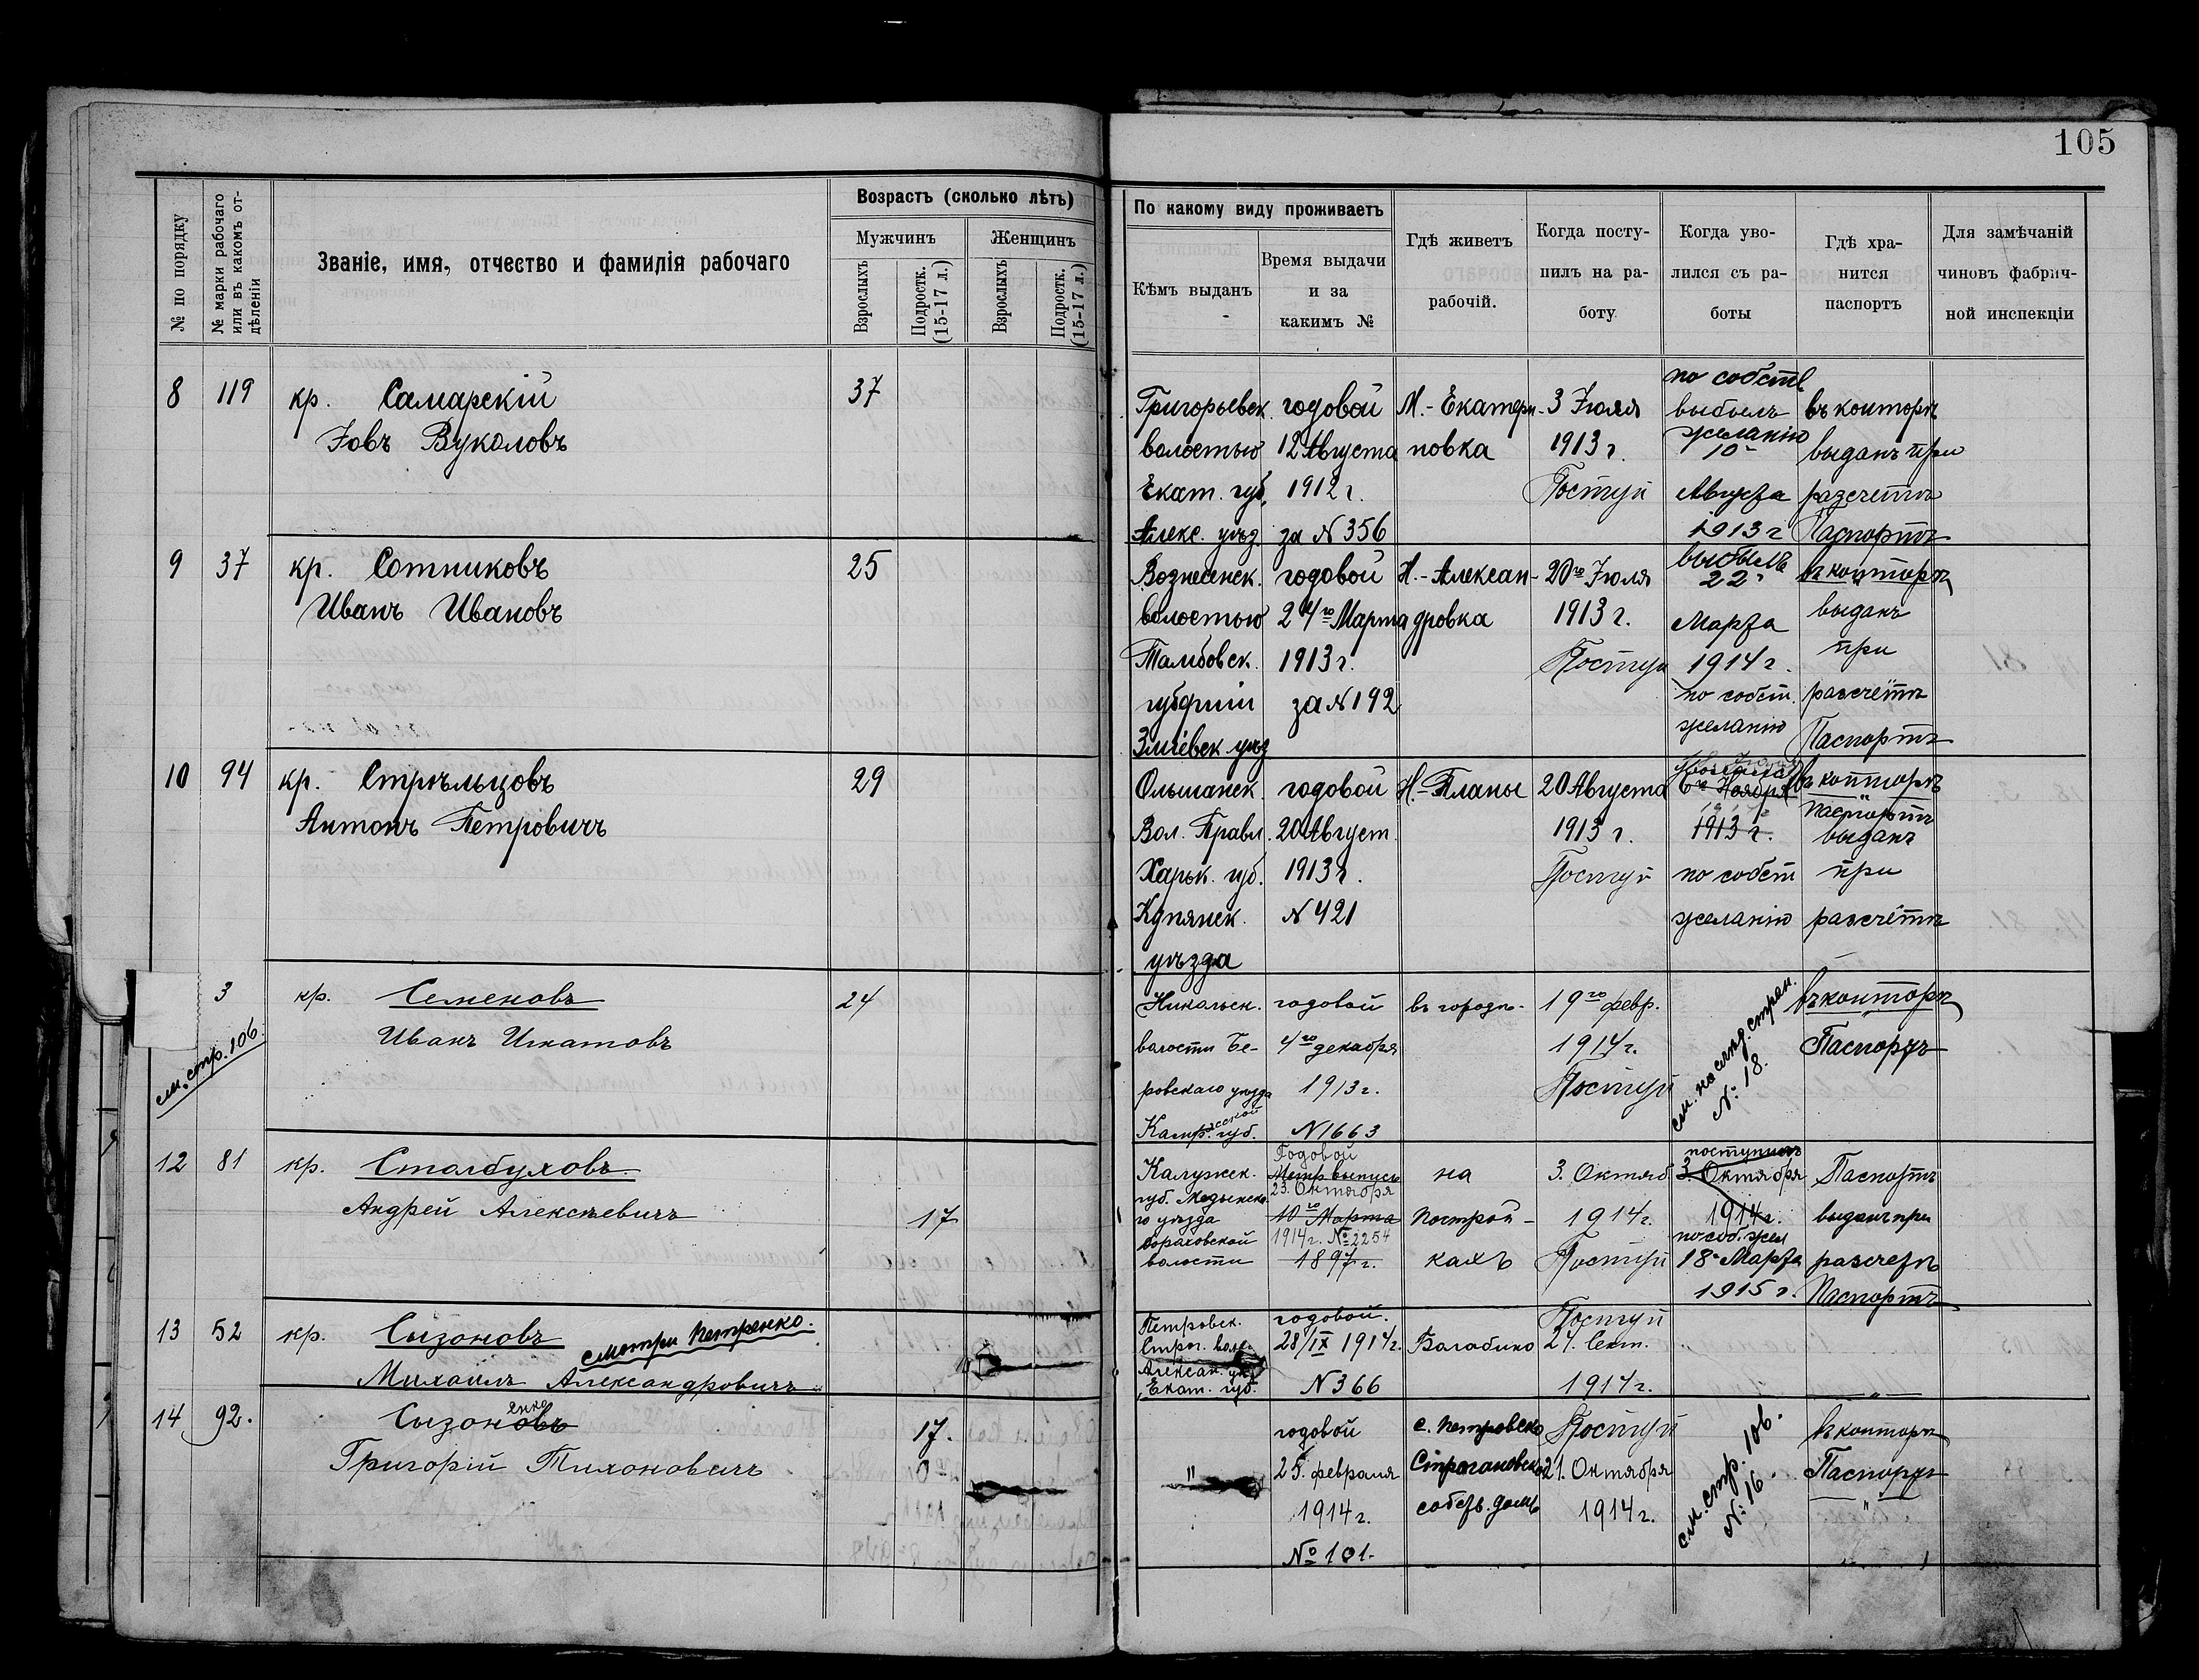 105
№ по порядку
№ марки рабочаго или въ какомъ отдѣленіи
Званіе, имя, отчество и фамилія рабочаго
Возрастъ (сколько лѣтъ)
Мужчинъ
Женщинъ
Взрослыхъ
Подростк. (15-17 л.)
Взрослыхъ
Подростк. (15-17 л.)
По какому виду проживаетъ
Кѣмъ выданъ
Время выдачи
и за
какимъ №
Гдѣ живетъ
рабочій.
Когда посту-
пилъ на ра-
боту
Когда уво-
лился съ ра-
боты
Гдѣ хра-
нится
паспортъ
Для замѣчаній
чиновъ фабрич-
ной инспекціи
8
119
кр. Самарскій
Іовъ Вуколовъ
37
Григорьевск.
волостью
Екат. губ.
Алекс. уѣз.
годовой
12 Августа
1912 г.
за N 356
М.- Екатери-
новка
3 Іюля
1913 г.
Поступ
по собств
выбылъ
желанію
10-
Августа
1913 г
въ конторѣ
выданъ при
разсчетѣ
Паспортъ
9
37
кр. Сотниковъ
Иванъ Ивановъ
25
Вознесенск.
волостью
Тамбовск.
губерніи
годовой
24го Марта
1913 г.
за N 192
Н.-Алексан-
дровка
20го Іюля
1913 г.
Поступ
выбылъ
22-
Марта
1914 г.
по собст.
желанію
въ конторѣ
выданъ
при
разсчётѣ
Паспортъ
10
94
кр. Стрѣльцовъ
Антонъ Петровичъ
29
Ольшанск.
Вол. Правл.
Харьк. губ.
Купянск.
уѣзда
годовой
20 Август.
1913 г.
N 421
Н.- Планы
20 Августа
1913 г.
Поступ
6го Ноября
1913 г.
по собст
желанію
въ конторѣ
паспортъ
выданъ
при
разсчётѣ
см. стр. 106.
3
кр. Семеновъ
Иванъ Игнатовъ
24
Никольск.
волости Бе-
ровскаго уѣзда
годовой
4го декабря
1913 г.
N 1663
въ городѣ-
19го февр.
1914 г.
Поступ
см. на слѣд. стран.
№ 18.
въ конторѣ
Паспортъ
12
81
кр. Столбуховъ
Андрей Алексѣевичъ
17
Калужск.
губ. Медынска-
го уѣзда
волости
Годовой
Метр. выпись
23. Октября
10го Марта
1914 г. № 2254
1897 г.
на
построй-
кахъ
3. Октяб.
1914 г.
Поступ
поступилъ
3. Октября
1914 г.
по соб. жел
18- Марта
1915 г.
Паспортъ
выданъ при
разсчетѣ
Паспортъ
13
52
кр. Сызоновъ
смотри Петренко.
Михаилъ Александровичъ
Петровск.
Строг. воло-
Александ. уѣз
Екат. губ.
годовой.
28/IX 1914 г.
N 366
Балабино
Поступ
24. Сент.
1914 г.
"
14
92.
Сызоновъ
енко
Григорій Тихоновичъ
17.
"
годовой
25. февраля
1914 г.
№ 101.
с. Петровско
Строгановско
собств. домъ
Поступ
21. Октября
1914 г.
см. стр. 106.
№ 16.
въ конторѣ
Паспортъ
"